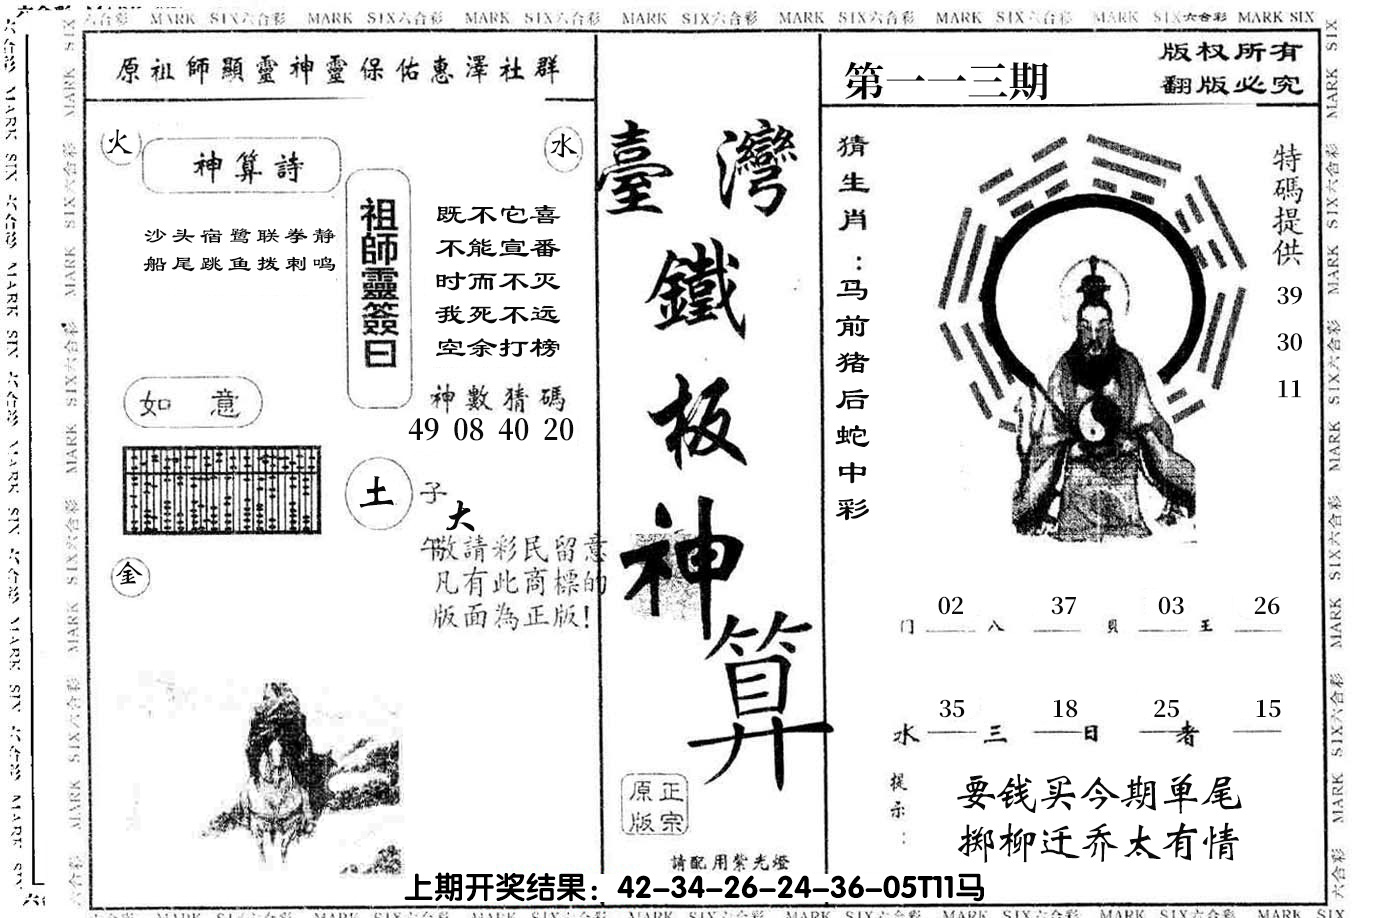 六合彩 MARK SIX六合彩 MARK SIX六合彩 MARK SIX六合彩 MARK SIX六合彩 MARK SIX六合彩 MARK SIX六合彩 MARK SIX六合彩 MARK SIX
原祖師顯靈神靈保佑惠澤社群
火
神算詩
水
沙头宿鹭联拳静
船尾跳鱼拨刺鸣
祖師靈簽曰
既不它喜
不能宣番
时而不灭
我死不远
空余打榜
神數猜碼
49 08 40 20
如 意
土
子
大
午
敬請彩民留意
凡有此商標的
版面為正版!
金
臺灣
鐵
板
神
算
正宗
原版
請配用紫光燈
第一一三期
版权所有
翻版必究
猜生肖:马前猪后蛇中彩
特碼提供
39
30
11
02 37 03 26
门 八 貝 王
35 18 25 15
水 三 日 者
提示:
要钱买今期单尾
掷柳迁乔太有情
上期开奖结果：42-34-26-24-36-05T11马